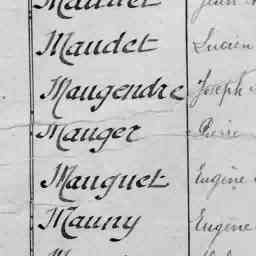 Maudet Lucien
Maugendre Joseph
Mauger Pierre
Mauguet Eugène
Mauny Eugène